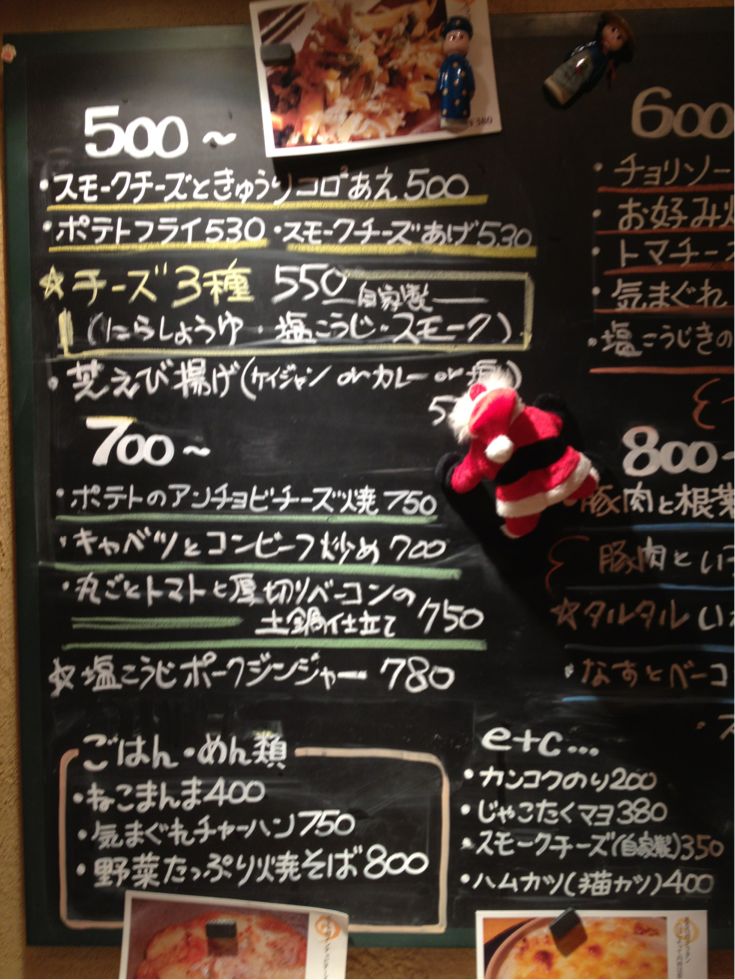 500～
・スモークチーズときゅうりコロコロあえ500
・ポテトフライ530 ・スモークチーズあげ530
☆チーズ3種 550 自家製
(にらしょうゆ・塩こうじ・スモーク)
・芝えび揚げ(ケイジャン or カレー or 塩)
5
700～
・ポテトのアンチョビチーズ焼 750
・キャベツとコンビーフ炒め 700
・丸ごとトマトと厚切りベーコンの
土鍋仕立て 750
☆塩こうじポークジンジャー 780
ごはん・めん類
・ねこまんま400
・気まぐれチャーハン750
・野菜たっぷり焼そば800
600
・チョリソー
・お好み
・トマチー
・気まぐれ
・塩こうじきの
800～
・豚肉と根菜
豚肉とい
☆タルタルい
・なすとベーコ
e+c...
・カンコクのり200
・じゃこたくマヨ380
・スモークチーズ(自家製)350
・ハムカツ(猫カツ)400